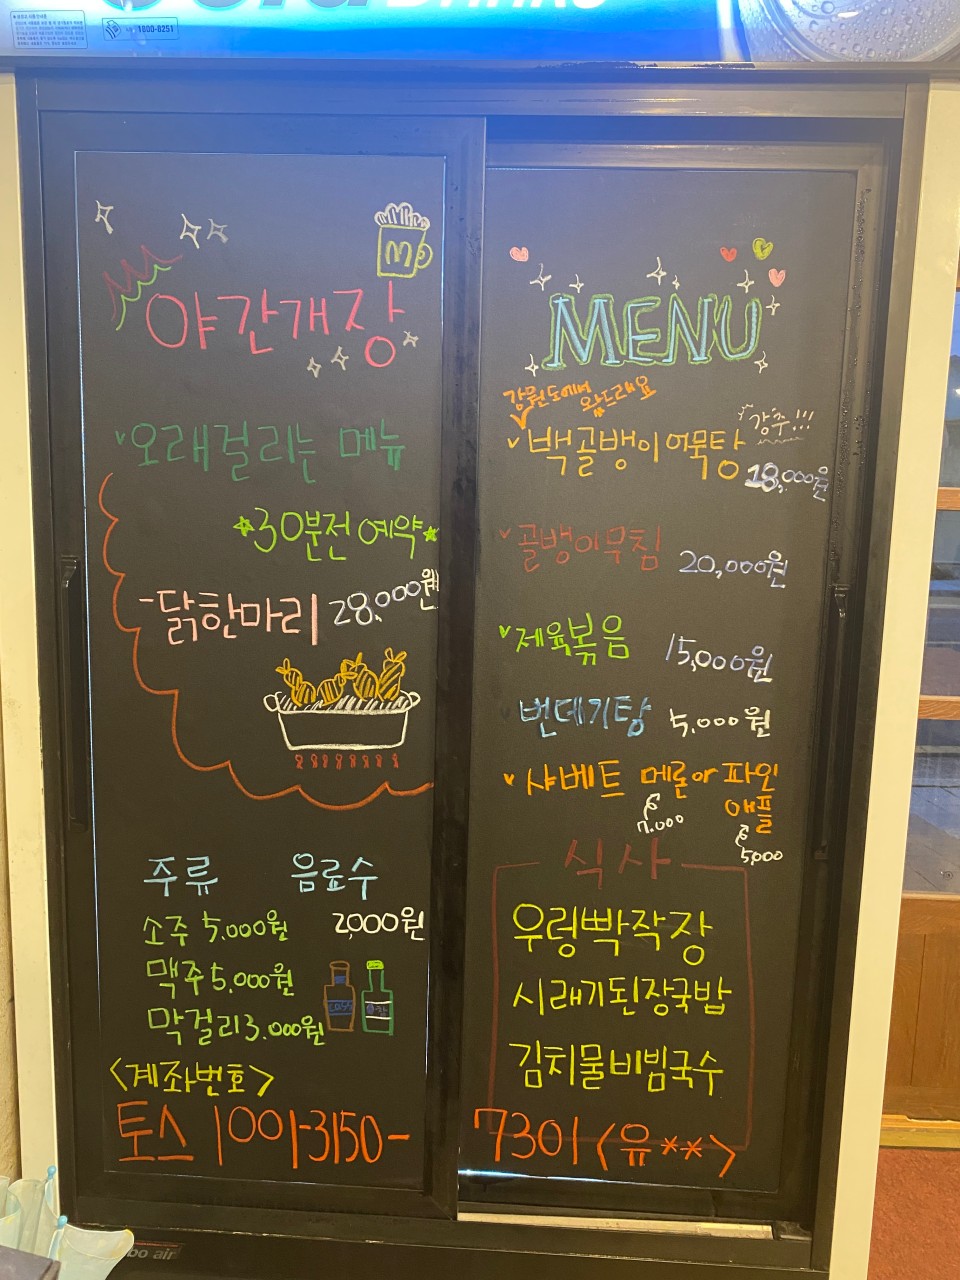 1800-8251
야간개장
오래걸리는 메뉴
30분전 예약
-닭한마리 28,000원
주류 음료수
소주 5,000원 2,000원
맥주 5,000원
막걸리 3,000원
<계좌번호>
토스 1001-3150-7301 <유**>
MENU
강원도에서 왔드래요
백골뱅이 어묵탕 강추!!!
18,000원
골뱅이무침 20,000원
제육볶음 15,000원
번데기탕 5,000원
샤베트 메론아 파인애플
7.000
5,000
식사
우렁빡작장
시래기된장국밥
김치물비빔국수